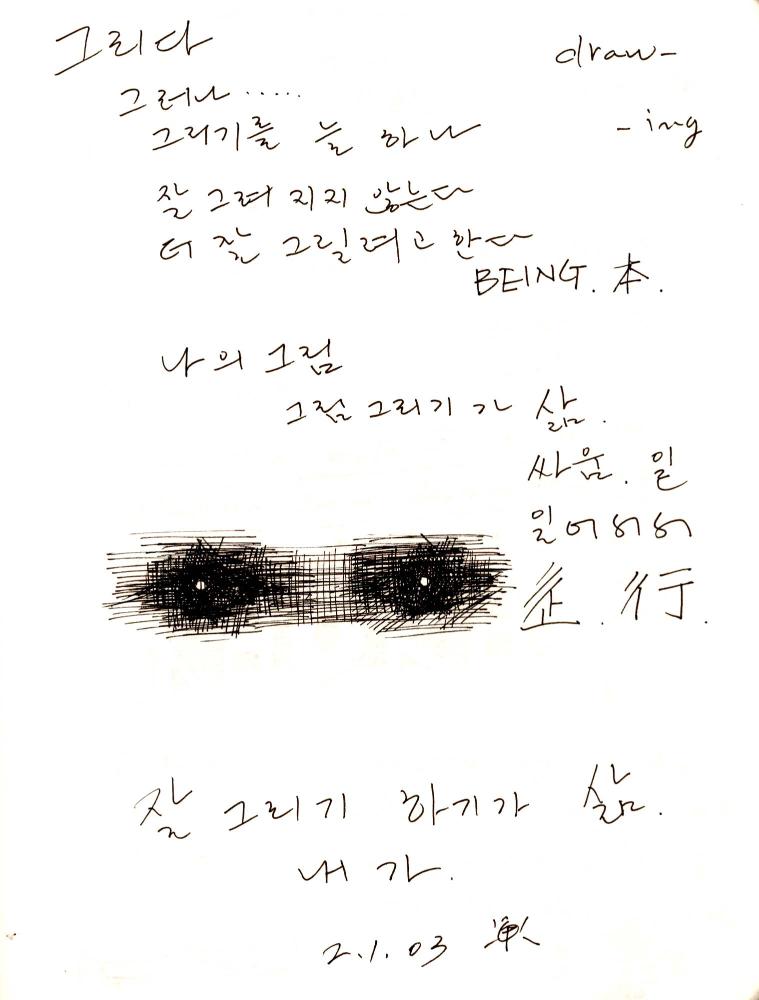 그리다 draw-
그러나 ·····
-ing
그리기를 늘 하나
잘 그려 지지 않는다
더 잘 그릴려고 한다
BEING. 本.
나의 그림
그림 그리기가 삶.
싸움. 일
일어
行.
잘 그리기 하기가 삶.
내가.
2.1.03